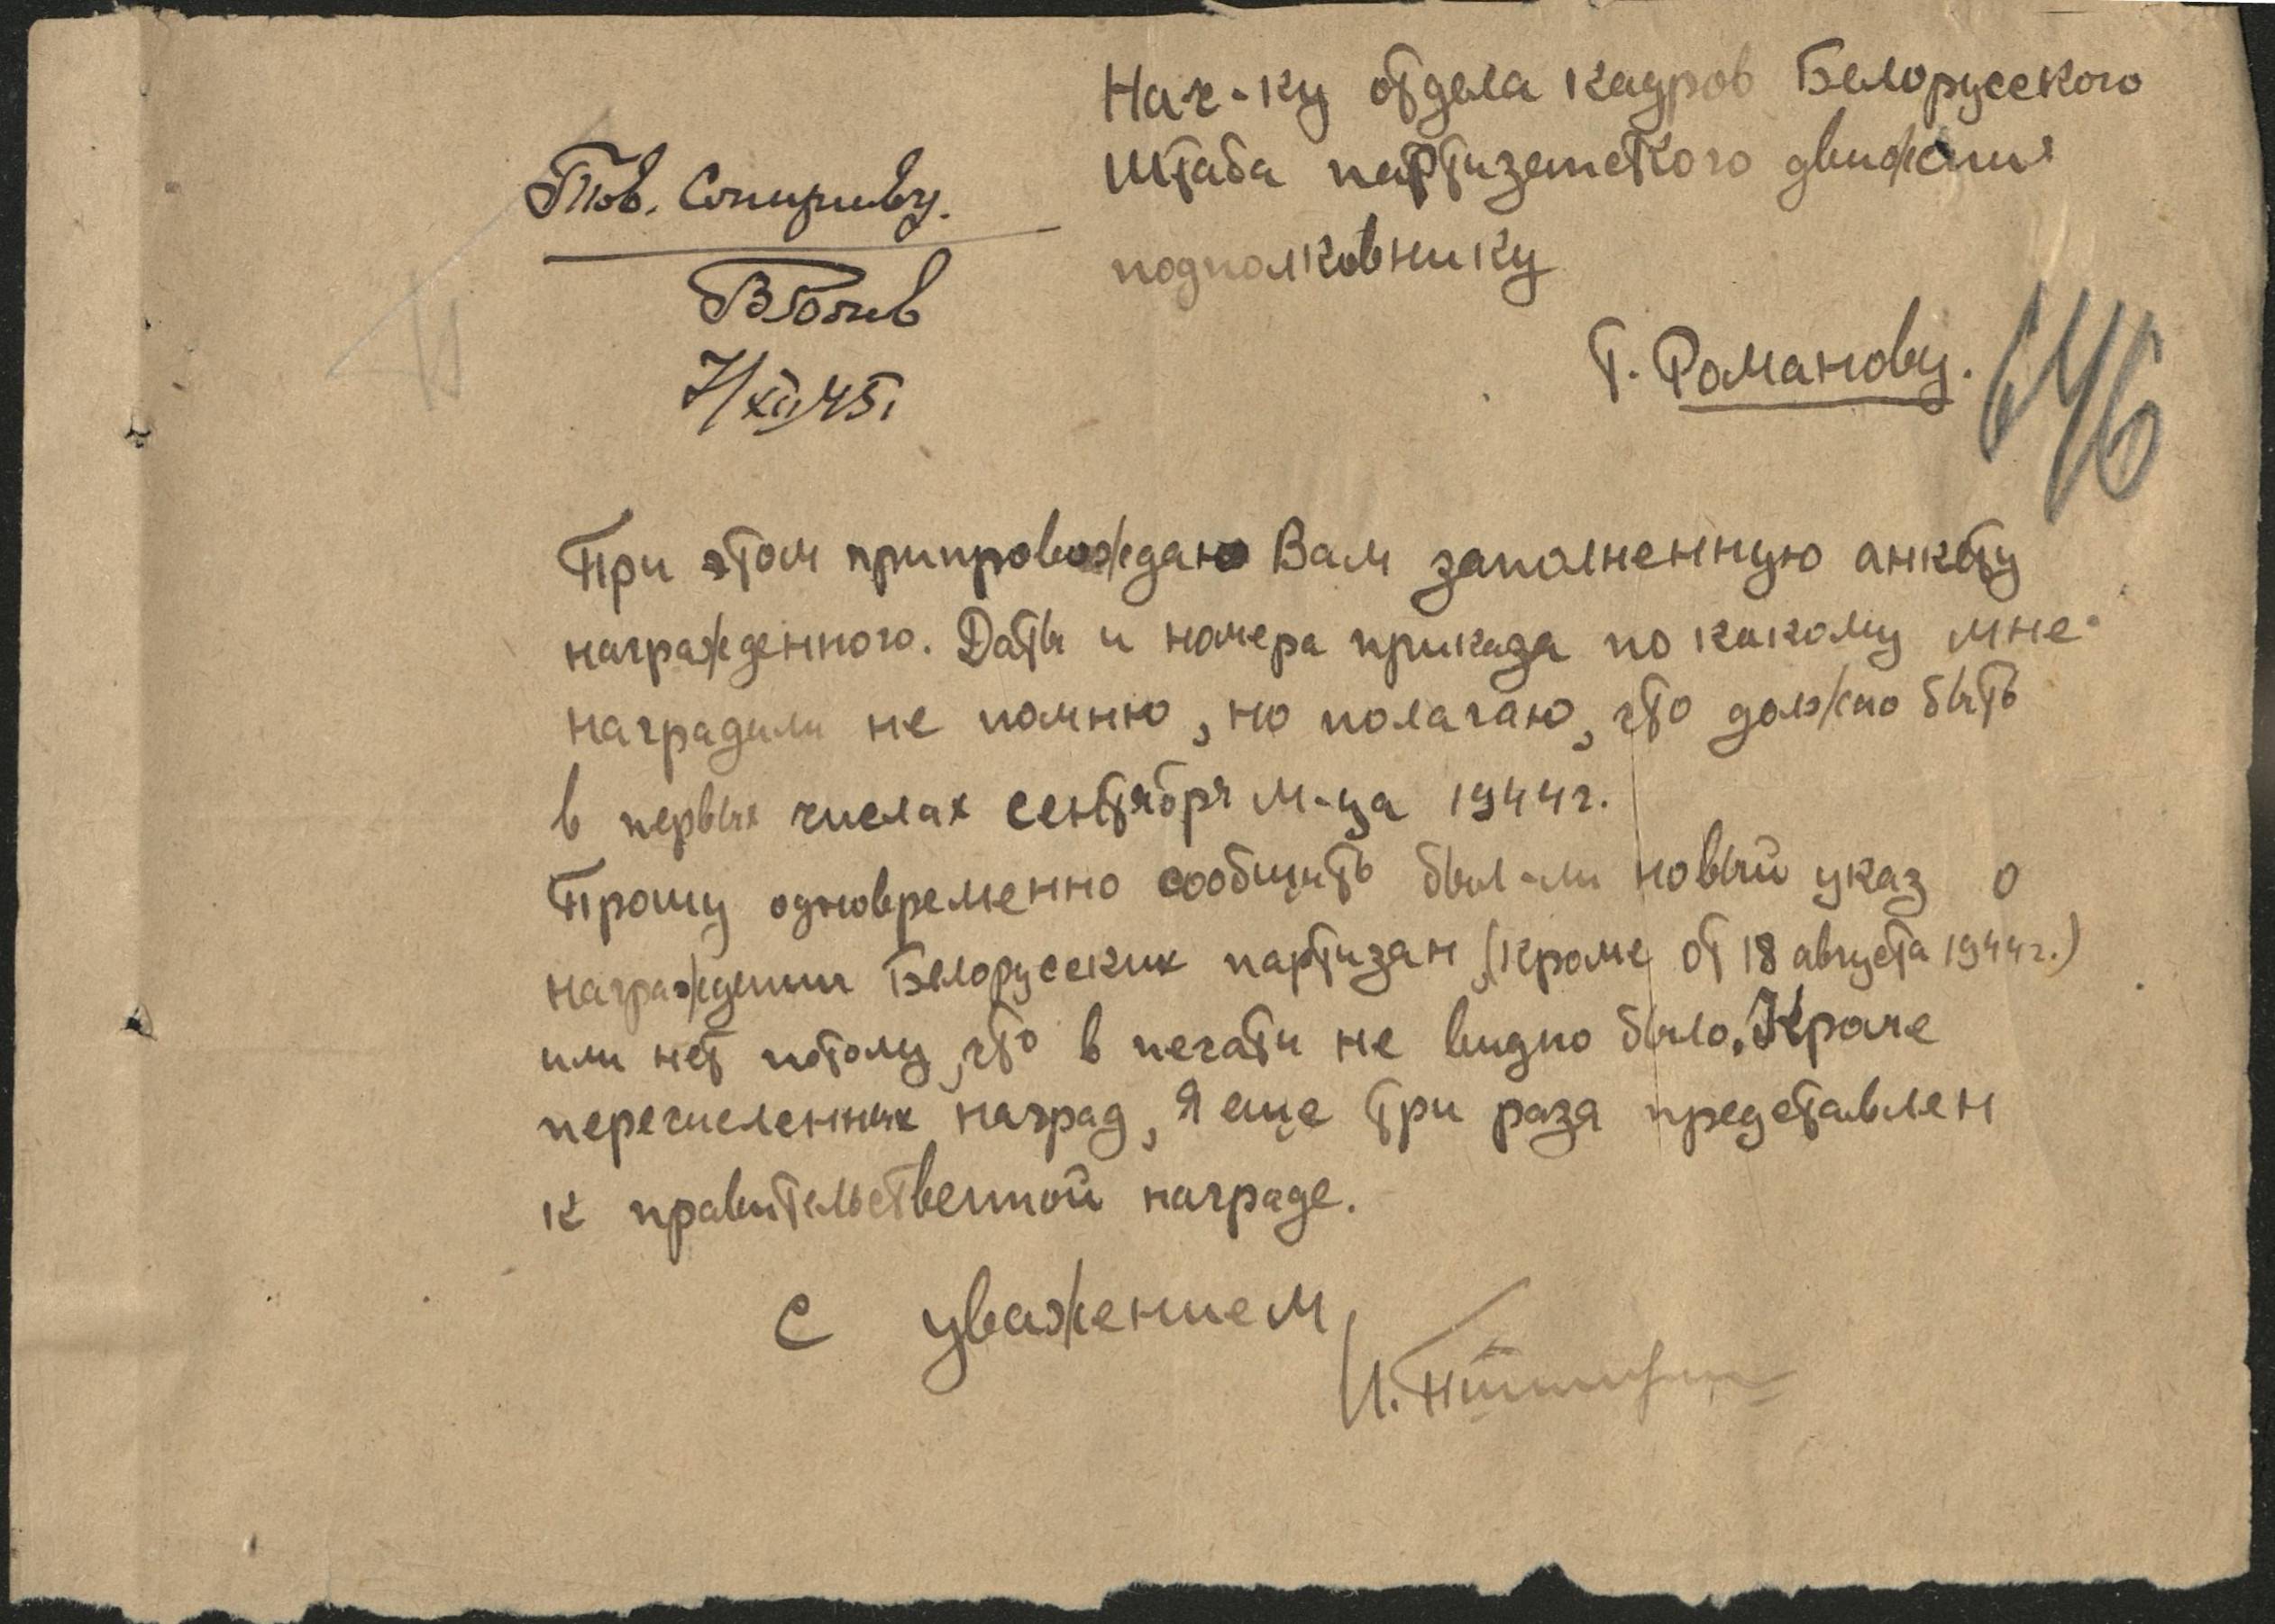 Нач-ку отдела кадров Белорусского
Штаба партизанского движения
подполковнику
т. Романову.
646
Тов.
7/XII 45г.
При этом припровождаю Вам заполненную анкету
награжденного. Даты и номера приказа по какому мне
наградили не помню, но полагаю, что должно быть
в первых числах сентября м-ца 1944г.
Прошу одновременно сообщить был-ли новый указ о
награждении Белорусских партизан, (кроме от 18 августа 1944г.)
или нет потому, что в печати не видно было. Кроме
перечисленных наград, я еще три раза представлен
к правительственной награде.
С уважением